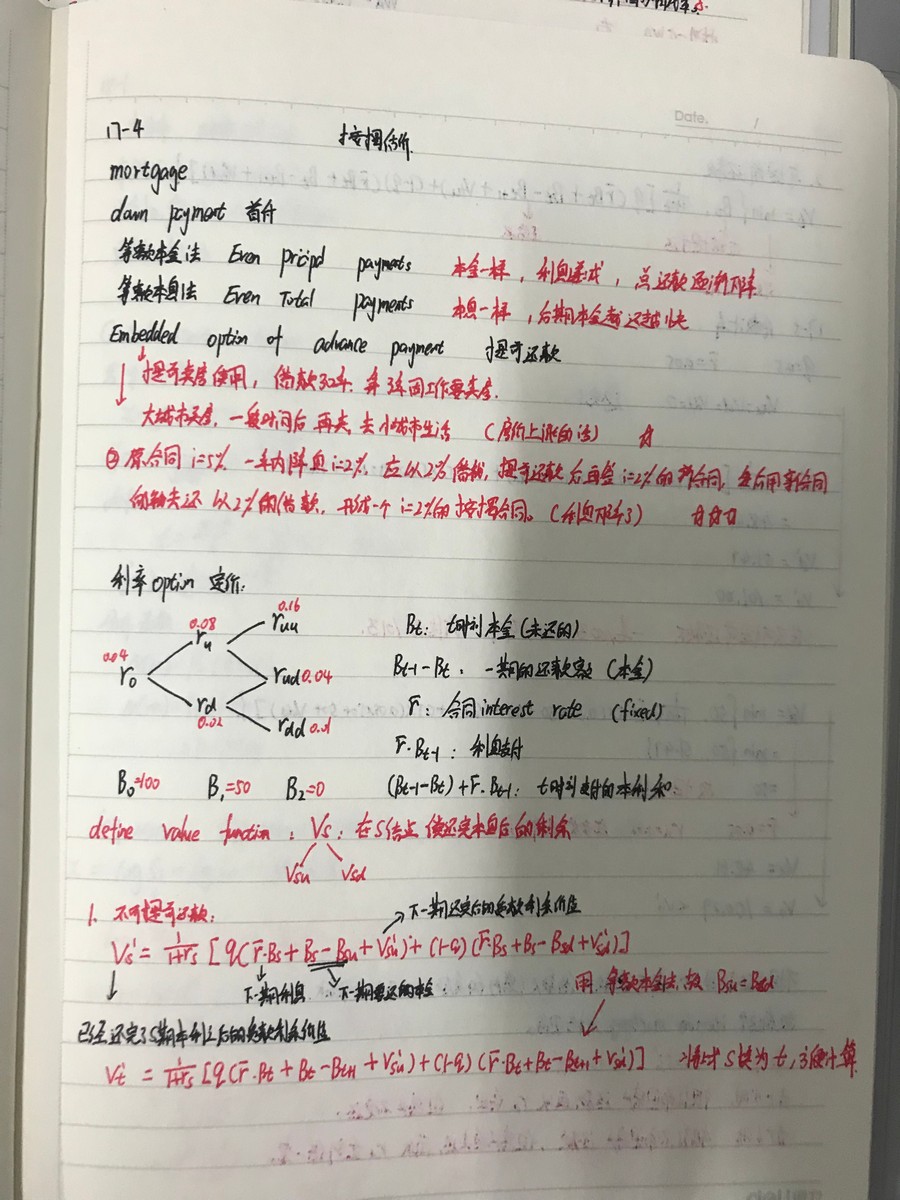 Date. 1
17-4 按揭估价
mortgage
down payment 首付
等额本金法 Even pricipl payments 本金一样，利息递减，总还款逐渐下降
等额本息法 Even Total payments 本息一样，后期本金越还越快
Embedded option of advance payment 提前还款
提前卖房使用，借款30年，第3年因工作要卖房.
大城市买房，一段时间后再卖，去小城市生活 (房价上涨的话) ☆
② 原合同 i=5%. 一年内降息 i=2%. 应以2%借钱，提前还款后再签 i=2%的新合同，
以2%的借款，形成一个 i=2%的按揭合同。(利息下降了) ☆☆☆
利率 option 定价:
0.04 r0 0.08 ru 0.16 ruu
rud 0.04
rd 0.02 rdd 0.01
Bt: t时刻本金 (未还的)
Bt-1-Bt: 一期的还款额 (本金)
r̄: 合同 interest rate (fixed)
r̄·Bt-1: 利息支付
B0=100 B1=50 B2=0 (Bt-1-Bt)+r̄·Bt-1: t时刻支付的本利和
define value function: Vs: 在S结点，偿还完本息后的剩余
Vsu Vsd
1. 不可提前还款: 下一期还完后的剩余价值
Vs' = 1/(1+rs) [q(r̄·Bs+Bs-Bsu+Vsu')+(1-q)(r̄·Bs+Bs-Bsd+Vsd')]
下一期利息 下一期要还的本金 用等额本金法，故 Bsu=Bsd
已经还完了S期本利之后的剩余价值
Vt' = 1/(1+rs) [q(r̄·Bt+Bt-Bt+1+Vsu')+(1-q)(r̄·Bt+Bt-Bt+1+Vsd')] S换为t，方便计算.